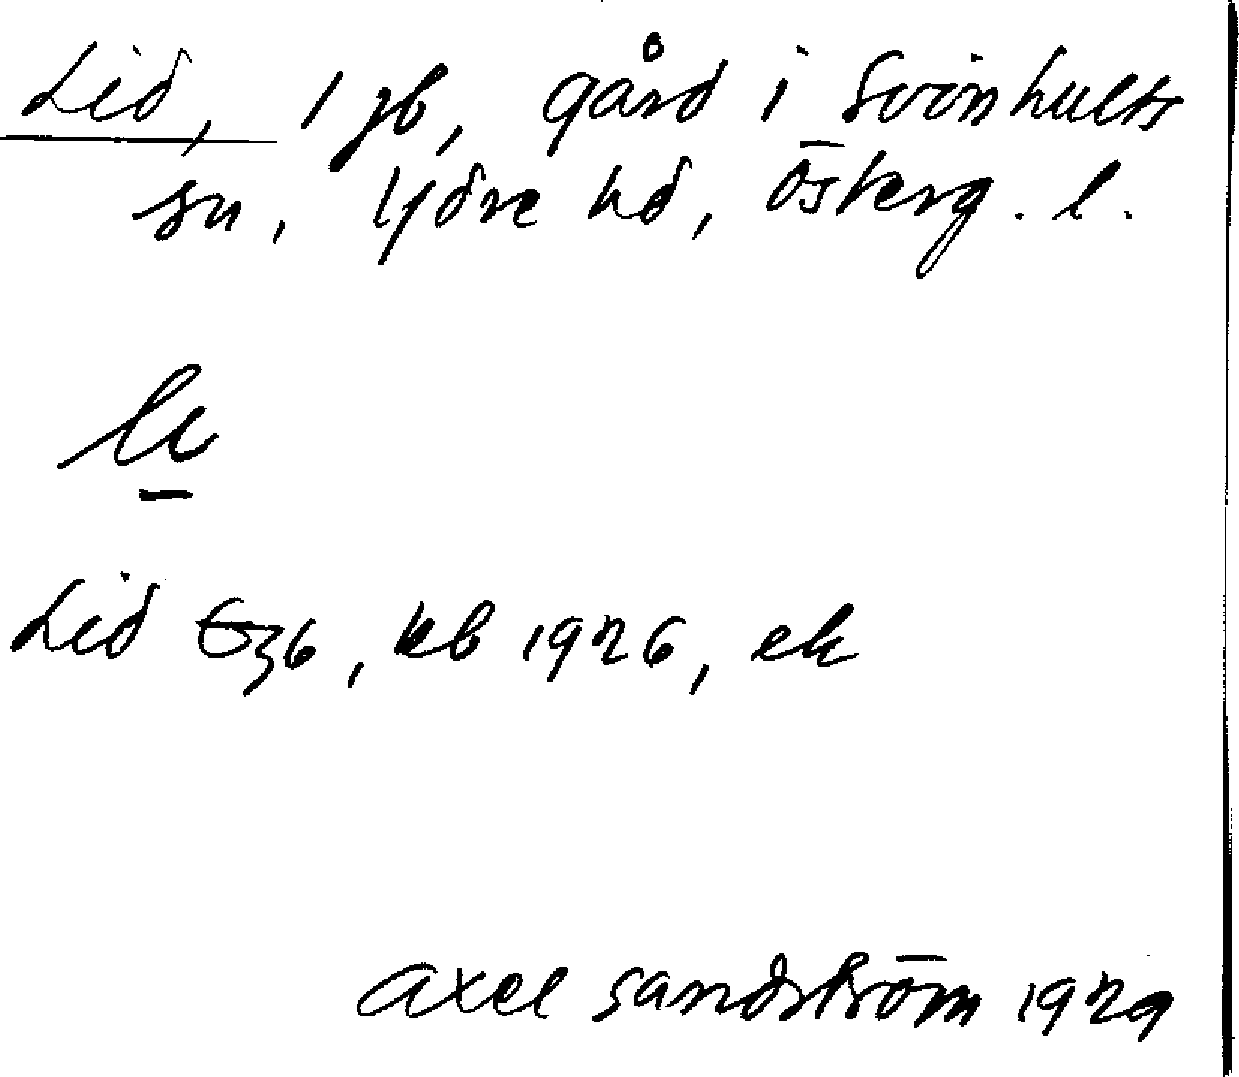 Lid, 1 gb, gård i Svinhults
sn, Ydre hd, Österg. l.
li
Lid Ez6, kb 1926, ek
Axel Sandström 1929